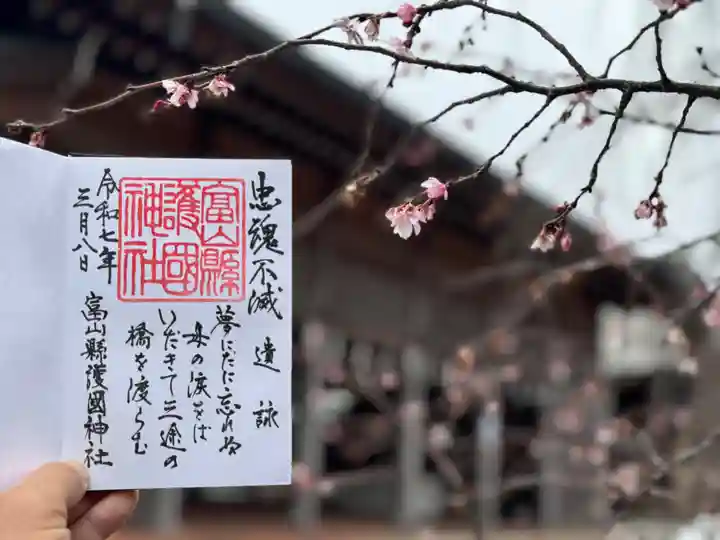 忠魂不滅 遺詠
夢にだに忘れぬ
母の涙をば
いだきて三途の
橋を渡らむ
富山縣護國神社
令和七年
三月八日
富山縣護國神社